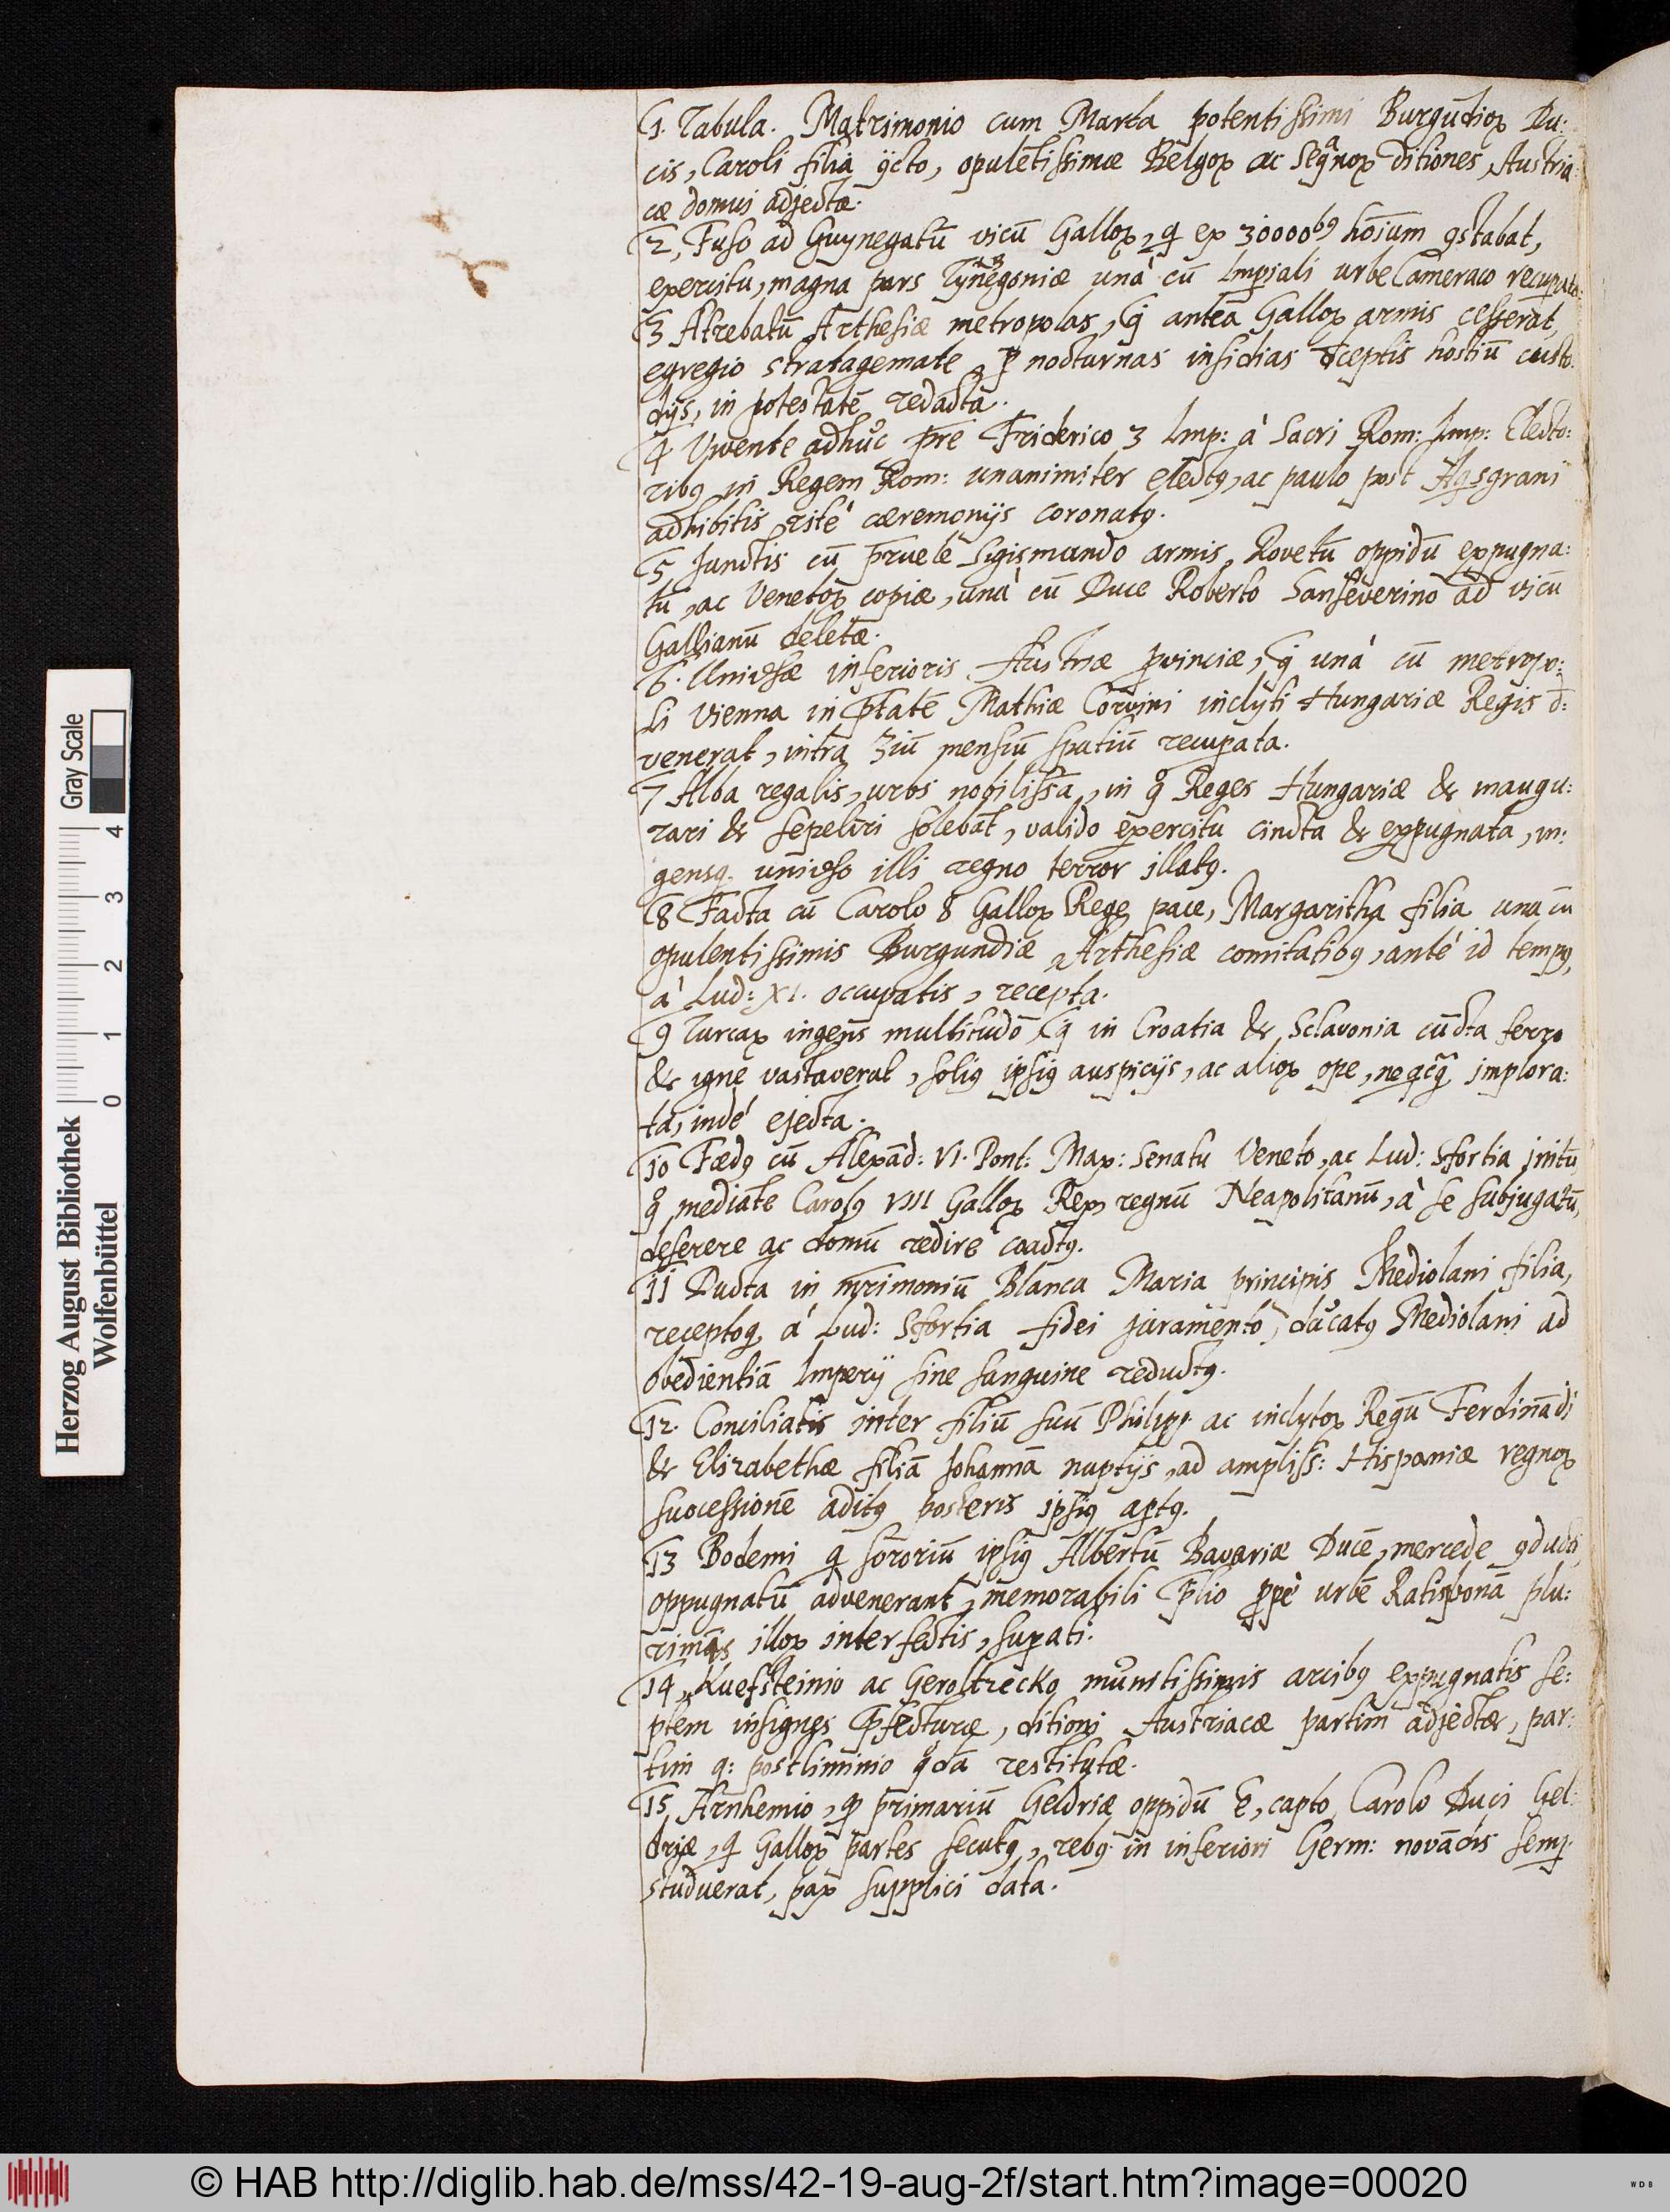 1. Tabula. Matrimonio cum Maria potentissimi Burgūdioꝝ Du:
cis, Caroli filia ꝯjcto, opulētissimæ Belgoꝝ ac Seqᵃnoꝝ ditiones, Austria
cæ domui adjectæ.
2, Fuso ad Guynegatū vicū Galloꝝ, q̃ ex 30000bꝯ hoīum ꝯstabat,
exercitu, magna pars unà cū Imꝑiali urbe Cameraco recuꝑata:
3 Atrebatū Arthesiæ metropolas, q̃ anteà Galloꝝ armis cesserāt,
egregio stratagemate, ꝑ nocturnas insidias dceptis hostiū custo:
dijs, in potestatē redacta.
4 Vivente adhuc pr̄e Friderico 3 Imp: à Sacri Rom: Imp: Electo:
ribꝯ in Regem Rom: unanimiter electꝯ, ac paulo post Aqsgrani
adhibitis ritè cæremonijs coronatꝯ.
5 Junctis cū pr̄uele Sigismundo armis, Rovetū oppidū expugna:
tū, ac Venetoꝝ copiæ, unà cū Duce Roberto Sanseverino ad vicū
Gallianū deletæ.
6. Univsæ inferioris Austriæ ꝓvinciæ, q̃ unà cū metropo:
li Vienna in ptātē Mathiæ Corvini inclyti Hungariæ Regis d:
venerat, intra 3iū mensiū spatiū recuꝑata.
7 Alba regalis, urbs nobilissa, in qᵒ Reges Hungariæ & inaugu:
rari & sepeliri solebāt, valido exercitu cincta & expugnata, in:
gensq. univso illi regno terror illatꝯ.
8 Facta cū Carolo 8 Galloꝝ Rege pace, Margaritha filia una cū
opulentissimis Burgundiæ, Arthesiæ comitatibꝯ, antè id tempꝯ,
à Lud: XI. occupatis, recepta.
9 Turcaꝝ ingens multitudo q̃ in Croatia & Sclavonia cūcta ferro
& igne vastaverat, soliꝯ ipsiꝯ auspicijs, ac alioꝝ ope, neqcq̃ implora:
ta, indè ejecta.
10 Fœdꝯ cū Alexād: VI. Pont: Max: Senatu Veneto, ac Lud: Sfortia initū,
qᵒ mediāte Carolꝯ VIII Galloꝝ Rex regnū Neapolitanū, à se subjugatū,
deserere ac domū redire coactꝯ.
11 Ducta in mr̄imoniū Blanca Maria principis Mediolani filia,
receptoq, à Lud: Sfortia fidei juramento, ducatꝯ Mediolani ad
obedientiā Imperij sine sanguine reductꝯ.
12. Conciliatis inter filiū suū Philipp. ac inclytoꝝ Regū Ferdināđi
& Elizabethæ filiā Johannā nuptijs, ad ampliss: Hispaniæ regnoꝝ
successionē aditꝯ posteris ipsiꝯ aptꝯ.
13 Bođemi q̃ sororiū ipsiꝯ Albertū Bavariæ Ducē, mercede ꝯducti
oppugnatū advenerant, memorabili p̄lio ꝓpè urbē Ratisbonā plu:
rimis illoꝝ interfectis, suꝑati.
14, Kuefsteinio ac Geroltzecko munitissimis arcibꝯ expugnatis se:
ptem insignes p̄fecturæ, ditioni Austriacæ partim adjectæ, par:
tim q: postliminio qᵒdā restitutæ.
15 Arnhemio, qđ primariū Geldriæ oppidū ē, capto, Carolo Duci Gel:
driæ, q̃ Galloꝝ partes secutꝯ, rebꝯ in inferiori Germ: novādis semꝑ
studuerat, pax supplici data.
Gray Scale
0 1 2 3 4
Herzog August Bibliothek
Wolfenbüttel
© HAB http://diglib.hab.de/mss/42-19-aug-2f/start.htm?image=00020
WDB